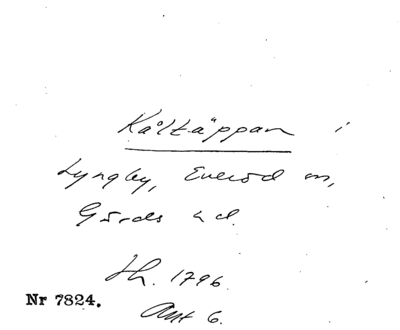 Kåltäppan i
Lyngby, Everöd sn,
Gärds hd.
Jh. 1796
Nr 7824.
Akt 6.